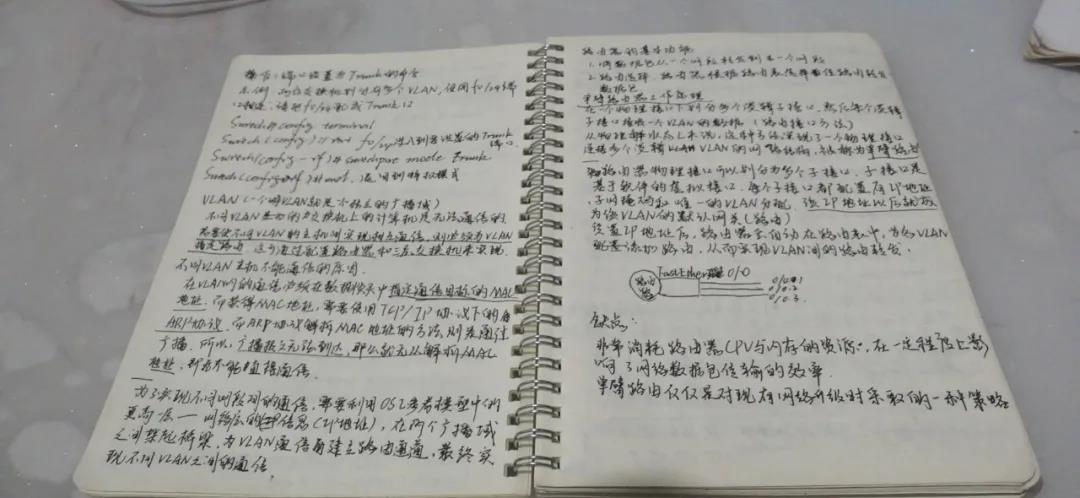 端口设置为Trunk的命令
示例:两台交换机划分有多个VLAN,使用f0/24端
口相连,请把f0/24配成Trunk口
Switch#config terminal
Switch(config)# f0/24 进入到要设置的Trunk端口
Switch(config-if)# switchport mode trunk
Switch(config-if)# 退回到特权模式
VLAN(一个VLAN就是个独立的广播域)
不同VLAN的交换机上的计算机是无法通信的
若要使不同VLAN的主机间实现相互通信,则必须为VLAN
指定路由 这可通过配置路由器和三层交换机来实现
不同VLAN主机不能通信的原因
在VLAN内的通信必须在数据帧头中指定通信目标的MAC
地址,而获得MAC地址,需要使用TCP/IP协议下的
ARP协议,而ARP协议解析MAC地址的方法,则是通过
广播,所以,广播报文无法到达,那么就无从解析MAC
地址,即也不能直接通信.
为了实现不同网段间的通信,需要利用OSI参考模型中的
更高一层——网络层的信息(IP地址),在两个广播域
之间架起桥梁,为VLAN通信建立路由通道,最终实
现不同VLAN之间的通信.
路由器的基本功能
1.将数据包从一个网段转发到另一个网段
2.路由选择 路由器依据路由表
数据包
单臂路由工作原理
在一个物理接口下划分多个逻辑子接口,然后每个逻辑
子接口接收一个VLAN的数据(路由接口方法)
从物理解状态上来说,这种方法实现了一个物理接口
连接多个逻辑VLAN的网络结构,被称为单臂路由
路由器物理接口可以划分为多个子接口,子接口是
基于软件的虚拟接口,每个子接口都配置有IP地址
、子网掩码和唯一的VLAN分配,该IP地址以后就成
为该VLAN的默认网关(路由)
设置IP地址后,路由器会自动在路由表中,为各VLAN
配置添加路由,从而实现VLAN间的路由转发.
FastEther 0/0
路由器
0/0.1
0/0.2
0/0.3
缺点:
非常消耗路由器CPU与内存的资源,在一定程度上影
响了网络数据包传输的效率
单臂路由仅仅是对现有网络升级时采取的一种策略